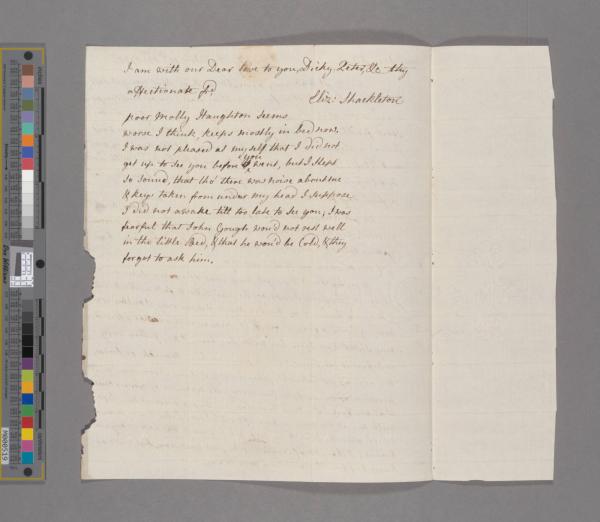 I am with our Dear love to you, Dicky Peter, &c thy
affectionate frd.
Eliz: Shackleton
poor Molly Haughton seems
worse I think, keeps mostly in bed now.
I was not pleased at myself that I did not
get up to see you before you went, but I slept
so sound, that tho' there was noise about me
& keys taken from under my head I suppose
I did not awake till too late to see you; I was
fearful that John Gough would not rest well
in the little Bed, & that he would be Cold, & they
forgot to ask him.
M000519